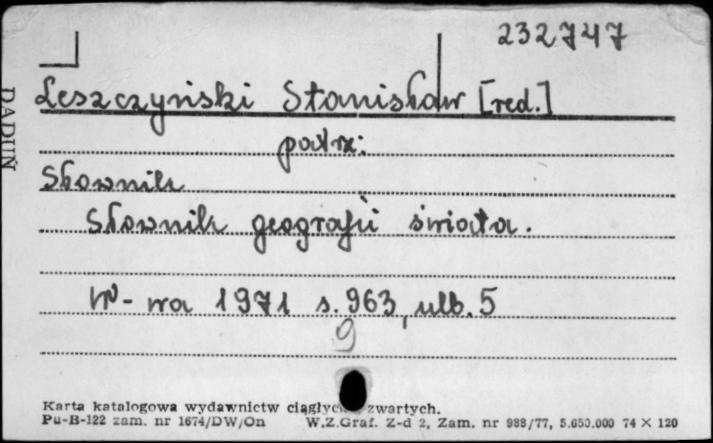 232747
Leszczyński Stanisław [red.]
patrz:
Słownik
Słownik geografii świata.
W-wa 1971 s. 963, ulb. 5
9
Karta katalogowa wydawnictw ciągłych zwartych.
Pu-B-122 zam. nr 1674/DW/On W.Z.Graf. Z-d 2, Zam. nr 988/77, 5.650.000 74 X 120